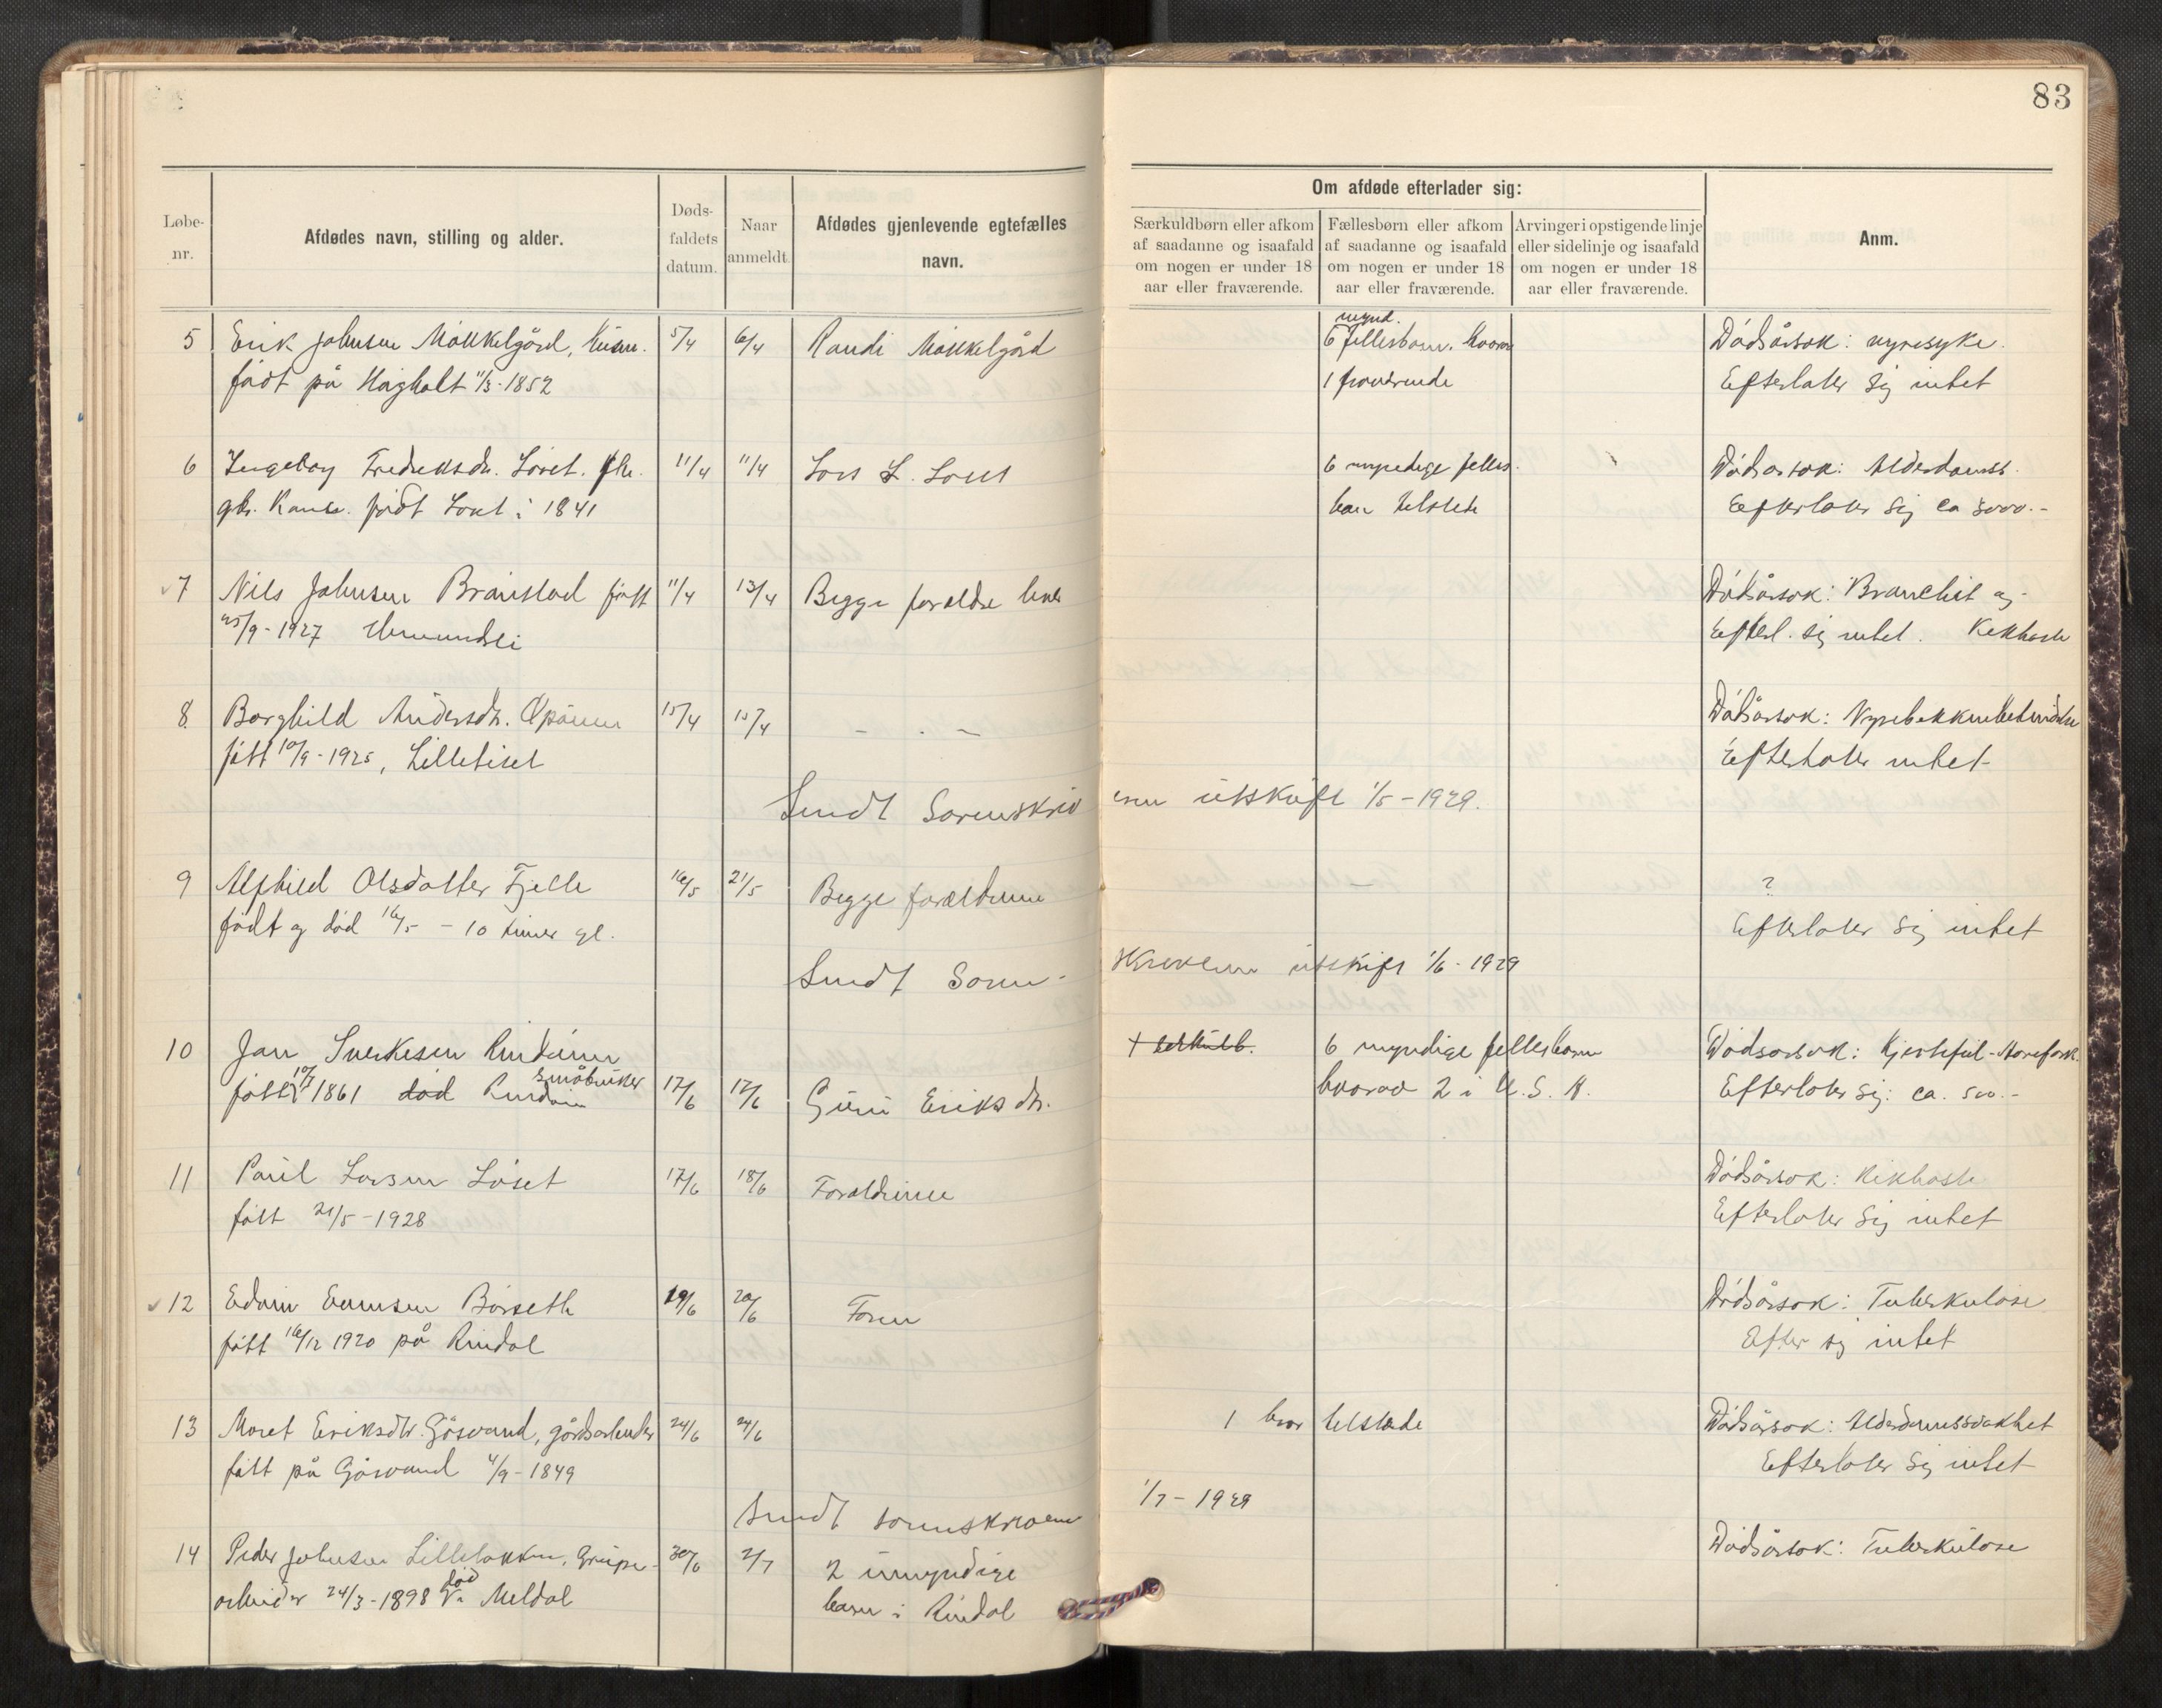 83
Løbe-nr.
Afdødes navn, stilling og alder.
Døds-faldets datum.
Naar anmeldt.
Afdødes gjenlevende egtefælles navn.
Om afdøde efterlader sig:
Særkuldbørn eller afkom af saadanne og isaafald om nogen er under 18 aar eller fraværende.
Fællesbørn eller afkom af saadanne og isaafald om nogen er under 18 aar eller fraværende.
Arvinger i opstigende linje eller sidelinje og isaafald om nogen er under 18 aar eller fraværende.
Anm.
5 Erik Johnsen 5/4 6/4 Randi 6 Dødsårsok: nyresyke.
født på 11/3-1852 1 Efterlater sig intet
6 Ingeborg Fredriksdtr. Løset. 11/4 11/4 Lars L. Løset 6 myndige felles Dødsårsok:
født Løset i 1841 barn tilstede Efterlater sig ca 3000.-
7 Nils Johnsen født 11/4 13/4 Begge foreldre lever Dødsårsok: Bronchit og
25/9-1927 Efterl. sig intet. Kikhoste
8. Borghild Andersdtr. 15/4 15/4 - - - Dødsårsok:
født 10/9-1925, Efterlater intet
Sendt Sorenskriveren utskrift 1/5-1929.
9 Alfhild Olsdatter Fjelle 16/5 21/5 Begge foreldrene - ?
født og død 16/5 - 10 timer gl. Efterlater sig intet
Sendt Soren-skriveren utskrift 1/6-1929
10 Jon Rindarm 6 myndige fellesbarn Dødsorsok:
småbruker
født 10/7 1861 død 17/6 17/6 Guri Eriksdtr. hvorav 2 i U.S.A. Efterlater sig: ca. 500.-
11 Paul Larsen Løset 17/6 18/6 Foreldrene Dødsårsok: Kikhoste
født 21/5-1928 Efterlater sig intet
12 Edvin Evensen Børseth 19/6 20/6 Faren Dødsårsok: Tuberkulose
født 16/12 1920 på Rindal Efter sig intet
13 Maret Eriksdtr. Gåsvand, gårdsarbeider 24/6 24/6 1 bror tilstede Dødsårsok: Alderdomssvakhet
født på Gåsvand 4/9-1849 Efterlater sig intet
Sendt sorenskriveren 1/7-1929
14 Peder Johnsen Lilleløkken, Grube- 30/6 2/7 2 umyndige Dødsårsok: Tuberkulose
arbeider 24/3-1898 død i Meldal barn i Rindal